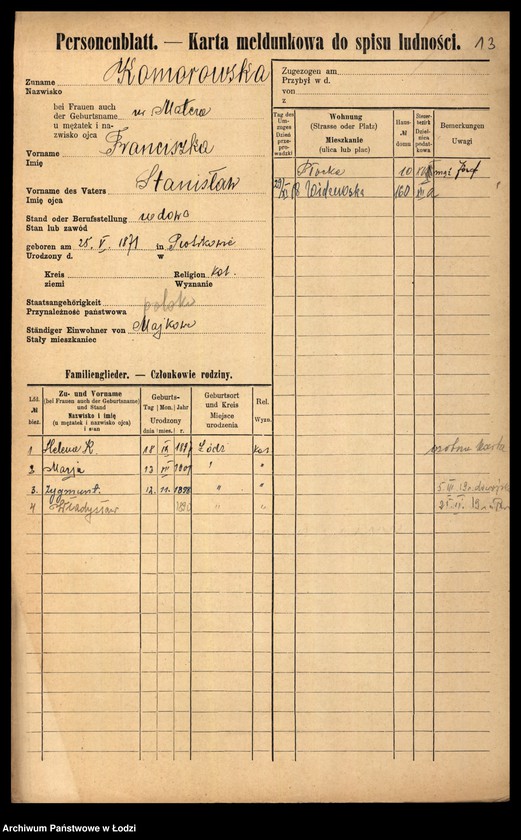 Personenblatt. — Karta meldunkowa do spisu ludności. 13
Zuname Komorowska
Nazwisko
bei Frauen auch
der Geburtsname
u mężatek i na-
zwisko ojca
Vorname Franciszka
Imię
Vorname des Vaters Stanisław
Imię ojca
Stand oder Berufsstellung wdowa
Stan lub zawód
geboren am 28. V. 1871 in
Urodzony d. w
Kreis Religion kat.
ziemi Wyznanie
Staatsangehörigkeit polska
Przynależność państwowa
Ständiger Einwohner von Majków
Stały mieszkaniec
Zugezogen am
Przybył w d.
von
z
Tag des Um-
zuges
Dzień
prze-
prowadzki
Wohnung
(Strasse oder Platz)
Mieszkanie
(ulica lub plac)
Haus-
№
domu
Steuer-
bezirk
Dziel-
nica
podatkowa
Bemerkungen
Uwagi
Płocka 10 mąż Józef
Widzewska 160
Familienglieder. — Członkowie rodziny.
Lfd.
№
bież.
Zu- und Vorname
(bei Frauen auch der Geburtsname)
und Stand
Nazwisko i imię
(u mężatek i nazwisko ojca)
i stan
Geburts-
Tag Mon. Jahr
Urodzony
dnia mies. r.
Geburtsort
und Kreis
Miejsce
urodzenia
Rel.
Wyzn.
1 Helena K. 18 IX Łódź kat. osobna karta
2 Marja 13 " "
3. Zygmunt. 12. 11. 1898 " "
4 Władysław " "
Archiwum Państwowe w Łodzi